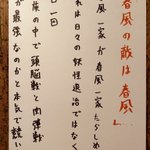 春風の敵は春風」
春風一家が春風一家たらしめ
れは日々の妖怪退治ではなく
一回
族の中で頭脳戦と肉弾戦
が最強なのかと本気で競い